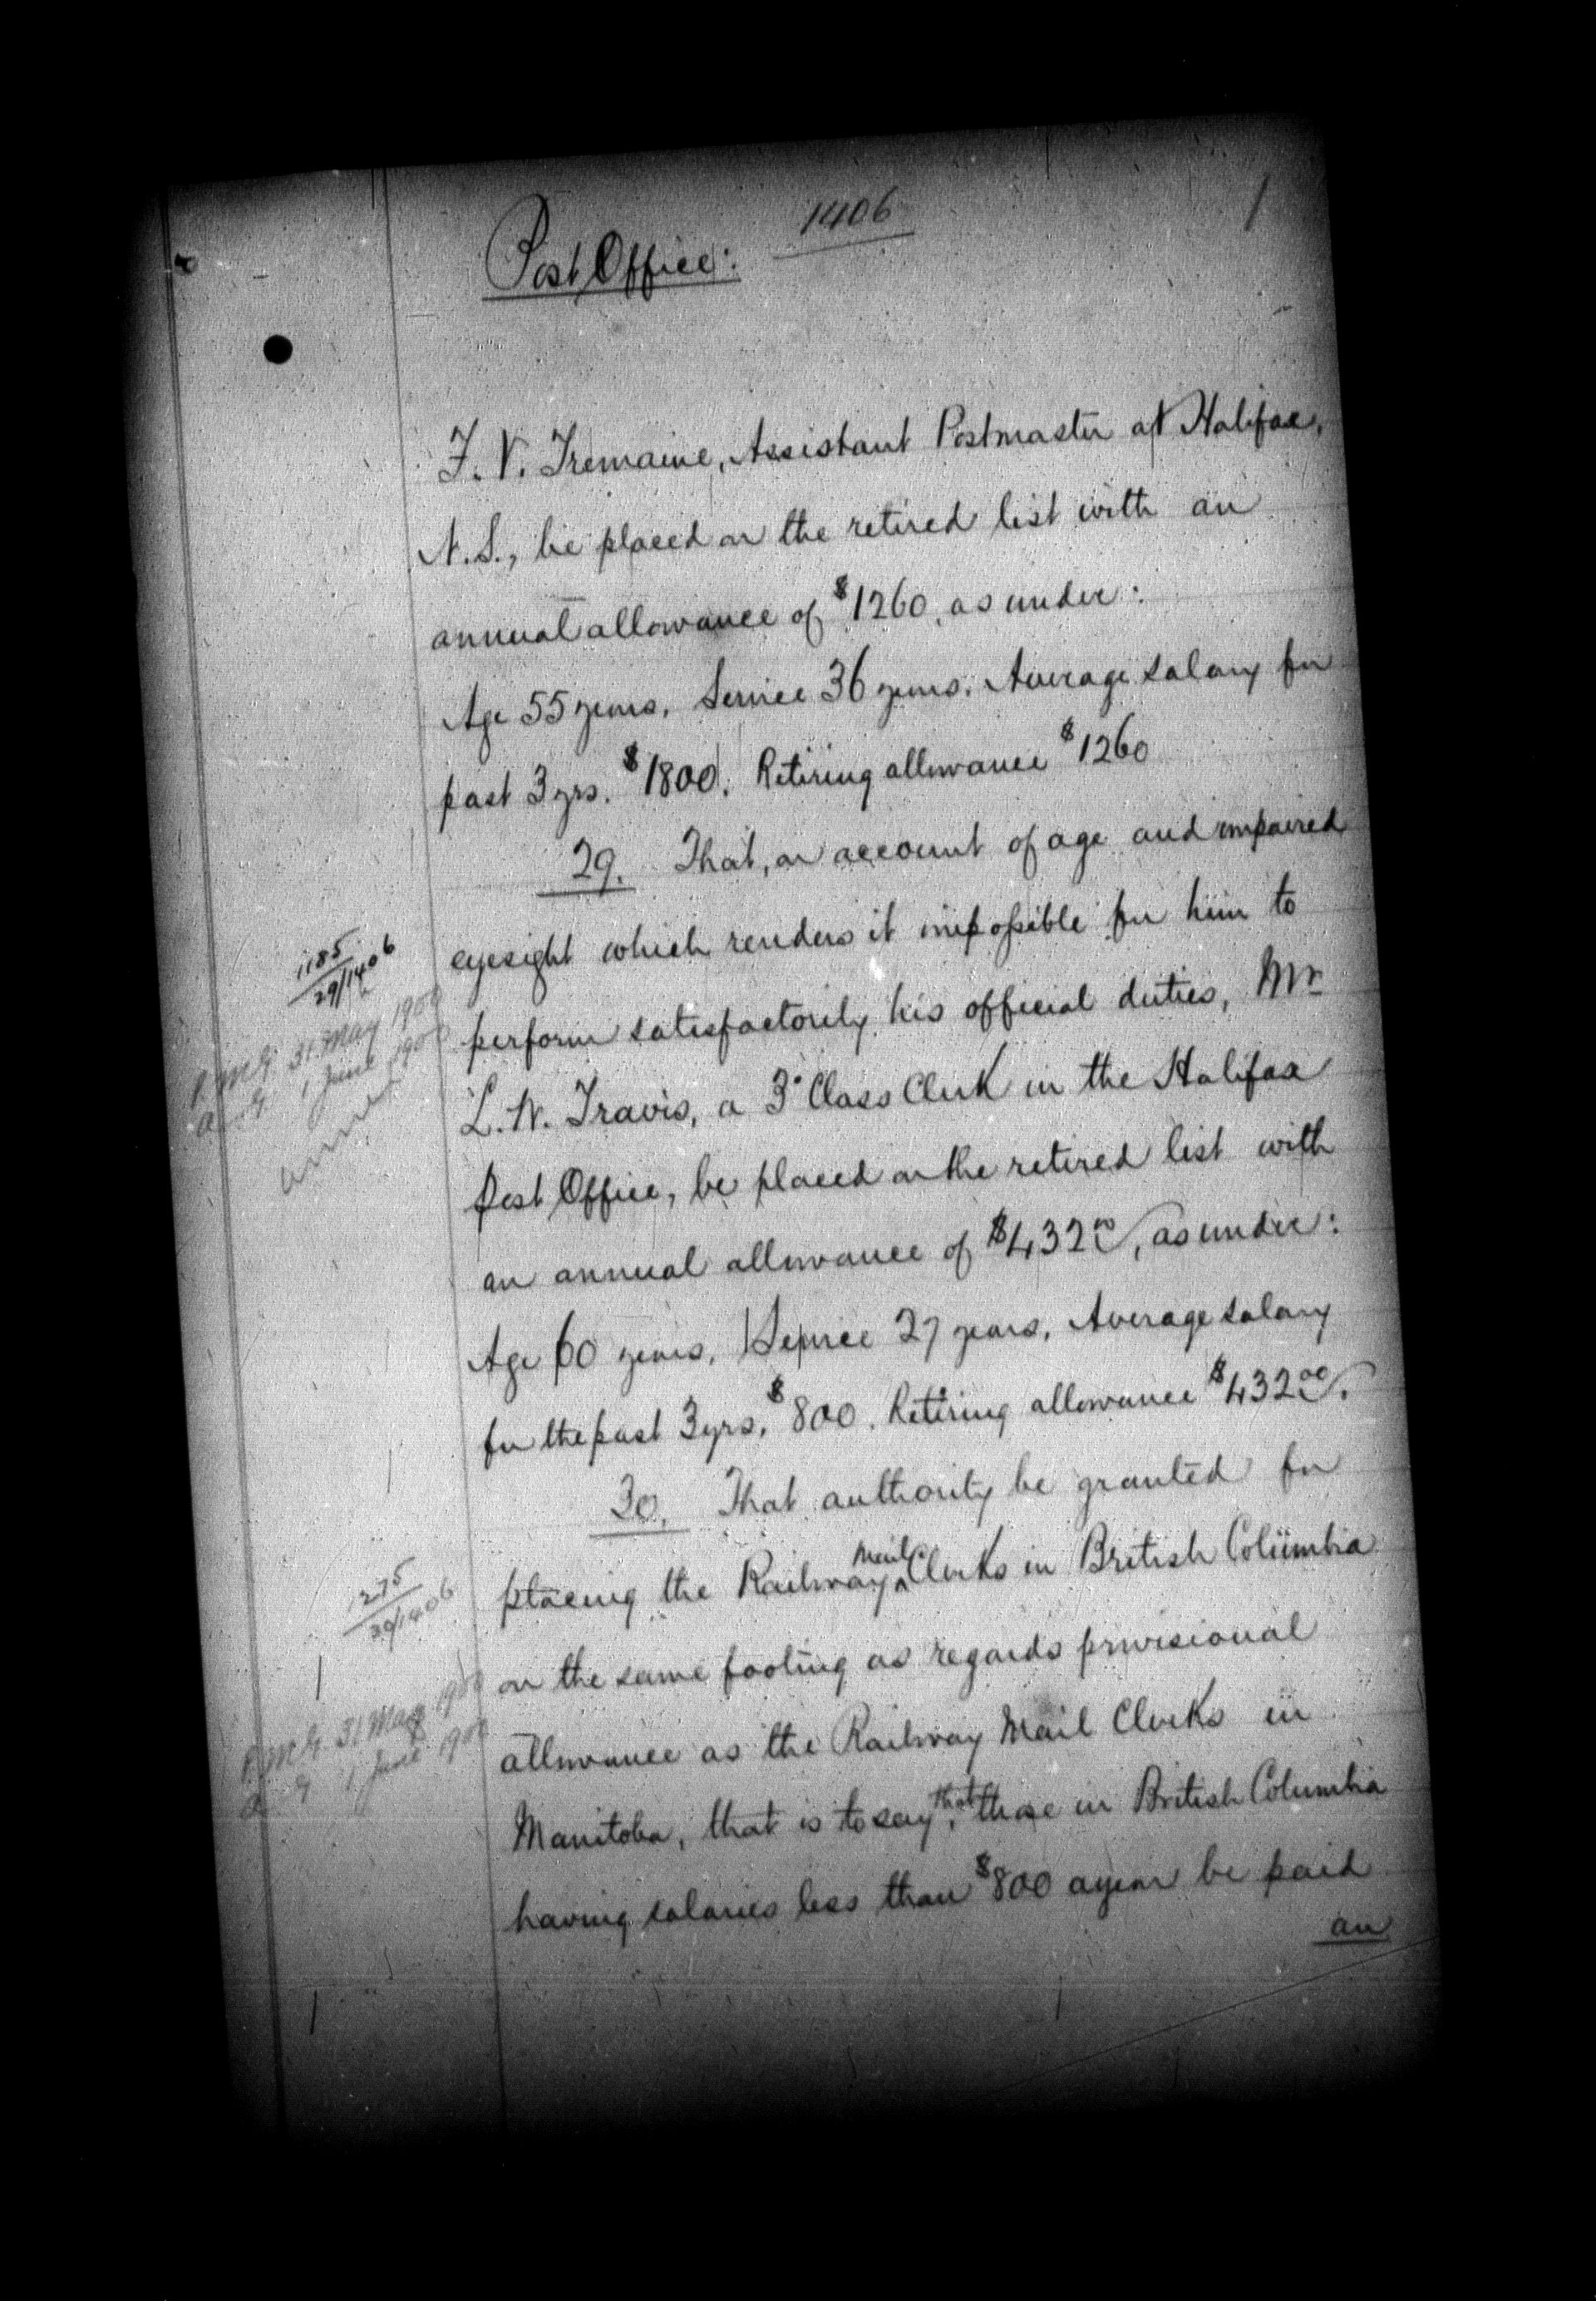 1406
Post Office:
F. V. Tremaine, Assistant Postmaster at Halifax,
N.S., be placed on the retired list with an
annual allowance of $1260, as under:
Age 55 years, Service 36 years, Average salary for
past 3 yrs. $1800. Retiring allowance $1260
29. That, on account of age and impaired
eyesight which renders it impossible for him to
perform satisfactorily his official duties, Mr
L. W. Travis, a 3° Class Clerk in the Halifax
Post Office, be placed on the retired list with
an annual allowance of $432 00, as under:
Age 60 years, Service 27 years, Average salary
for the past 3 yrs, $800. Retiring allowance $432 00.
30. That authority be granted for
placing the Railway Mail Clerks in British Columbia
on the same footing as regards provisional
allowance as the Railway Mail Clerks in
Manitoba, that is to say, that those in British Columbia
having salaries less than $800 a year be paid
an
1185
29/1406
P.M.G. 31 May 1900
1 June 1900
annex
1275
30/1406
P.M.G. 31 May 1900
1 June 1900